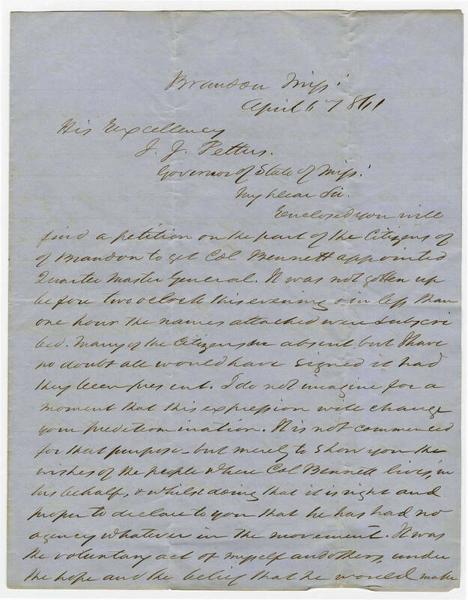 Brandon Miss:
April 17 1861
His Excellency
J. J. Pettus.
Governor of State of Miss:
My Dear Sir.
Enclosed you will
find a petition on the part of the Citizens of
of Brandon to get Col Bennett appointed
Quarter Master General. It was not gotten up
before two oclock this evening & in less than
one hour the names attached were subscri
bed. Many of the Citizens are absent but I have
no doubt all would have signed it had
they been present. I do not imagine for a
moment that this expression will change
your predetermination. It is not commenced
for that purpose - but merely to show you the
wishes of the people where Col Bennett lives, in
his behalf, & whilst doing that it is right and
proper to declare to you that he has had no
agency whatever in the movement. It was
the voluntary act of myself and others, under
the hope and the belief that he would make